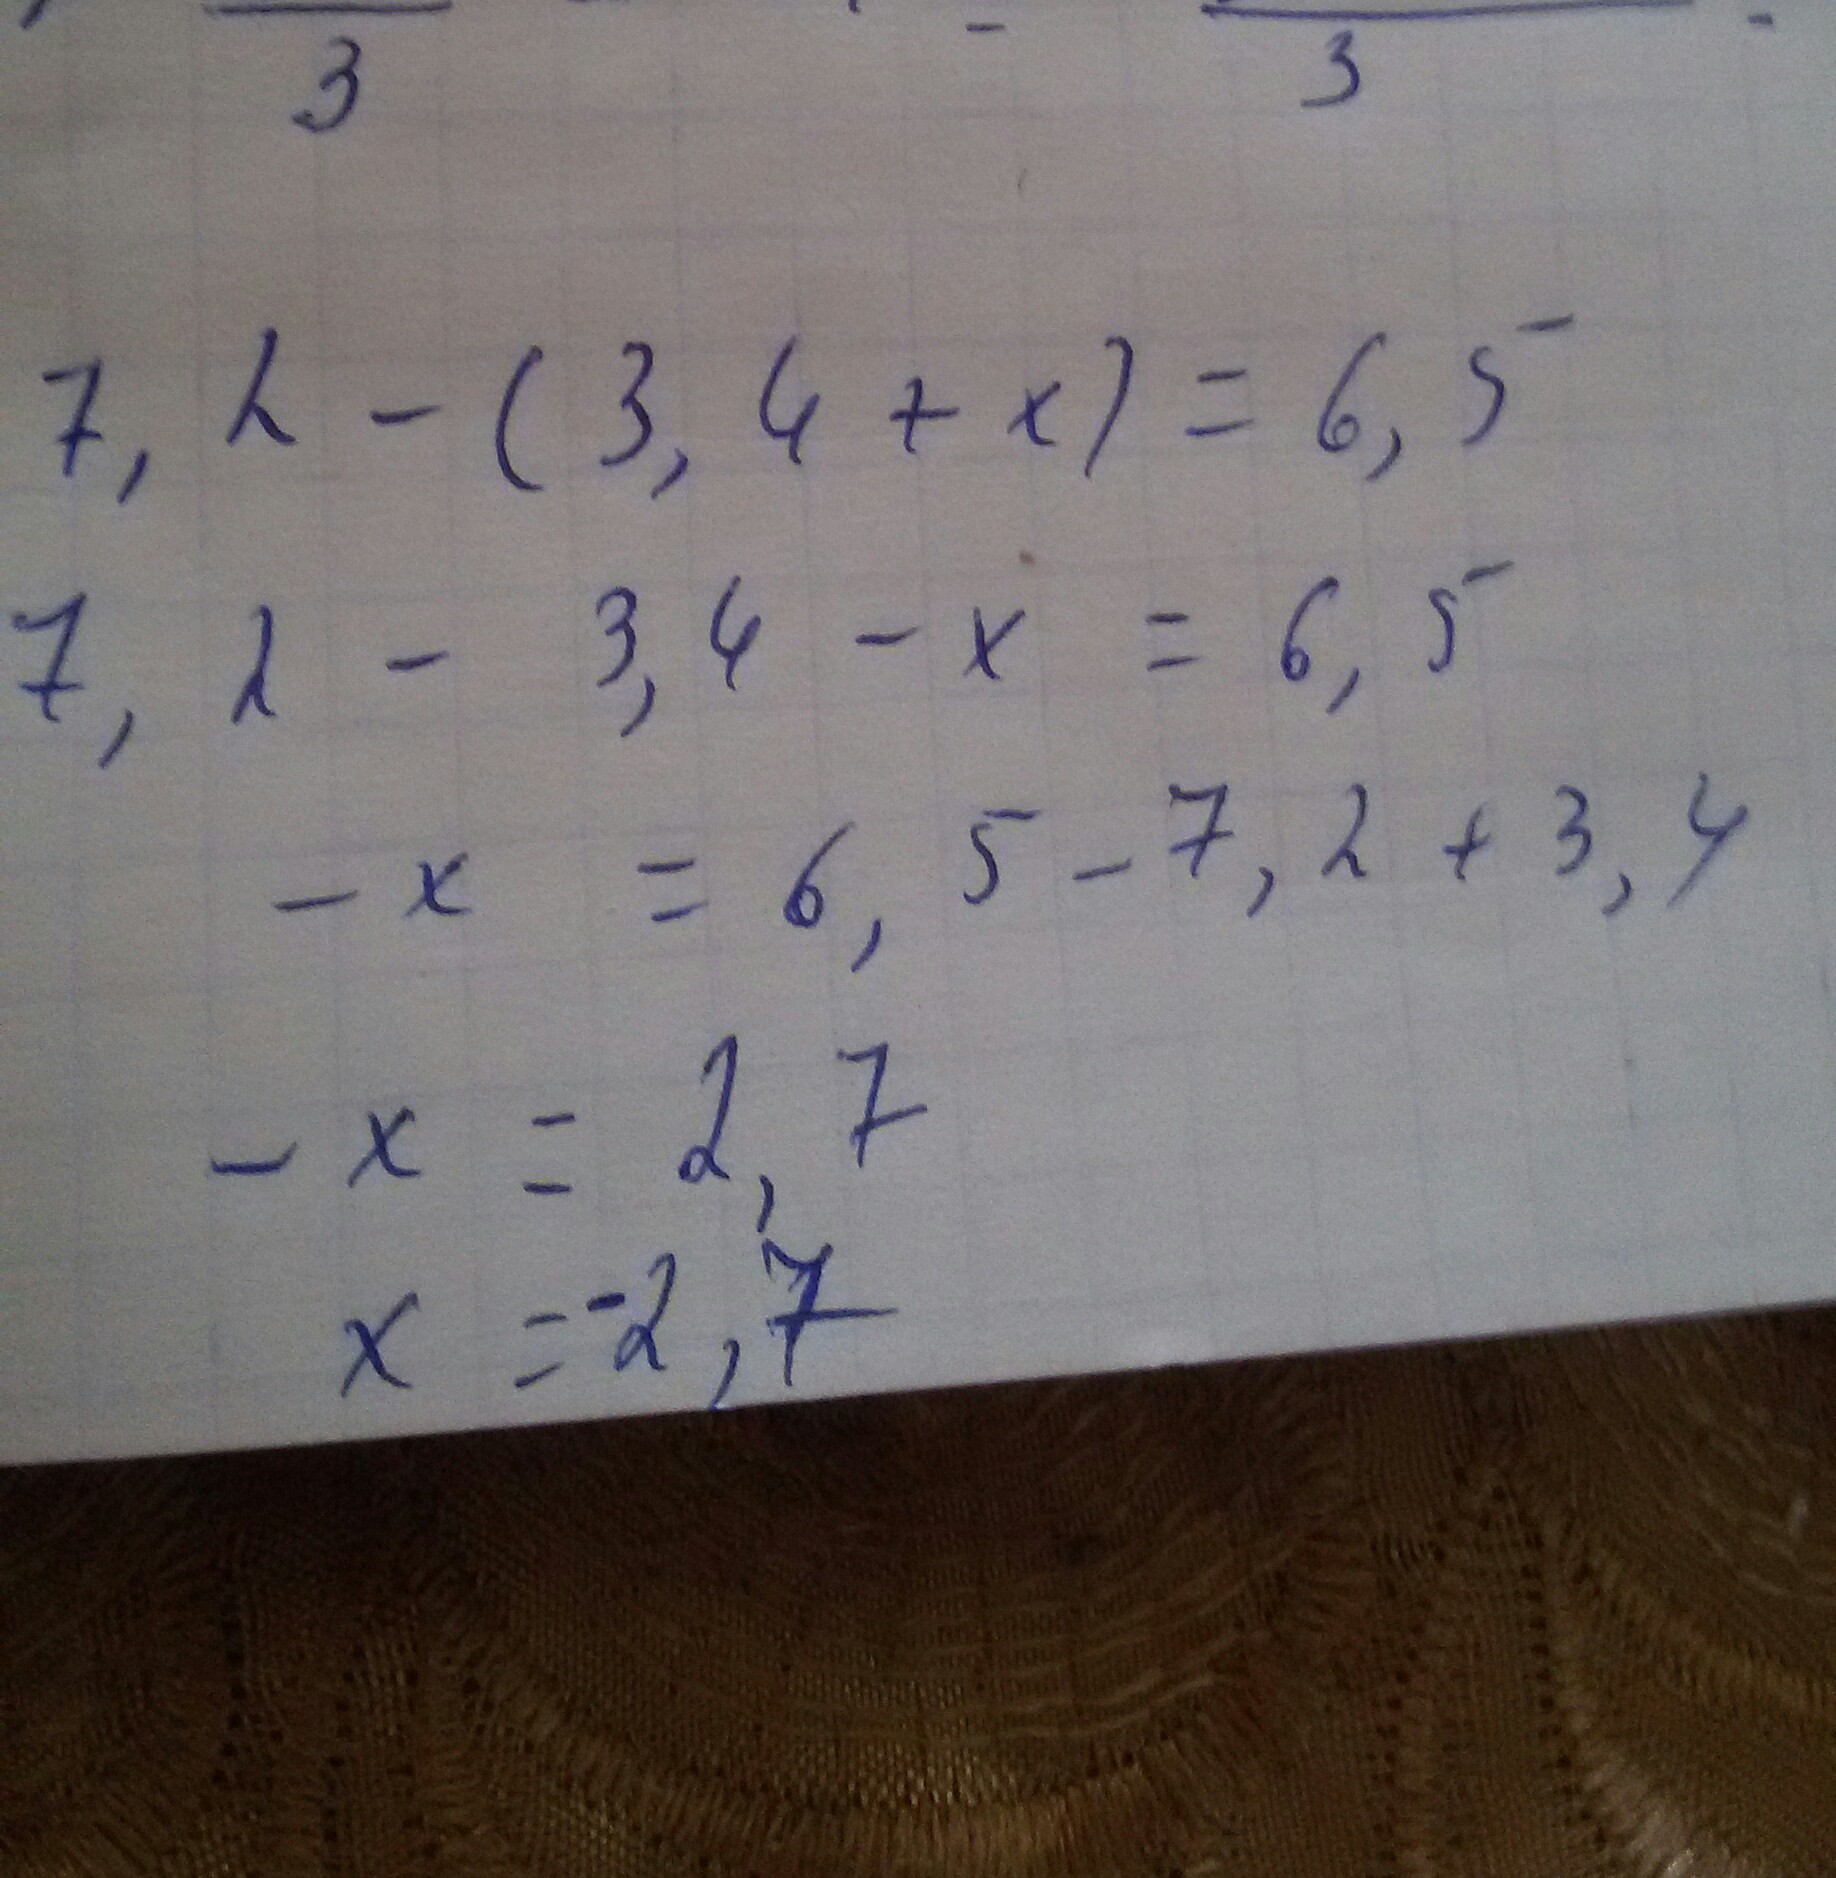 3 3
7,2 - (3,4 + x) = 6,5
7,2 - 3,4 - x = 6,5
- x = 6,5 - 7,2 + 3,4
- x = 2,7
x = -2,7